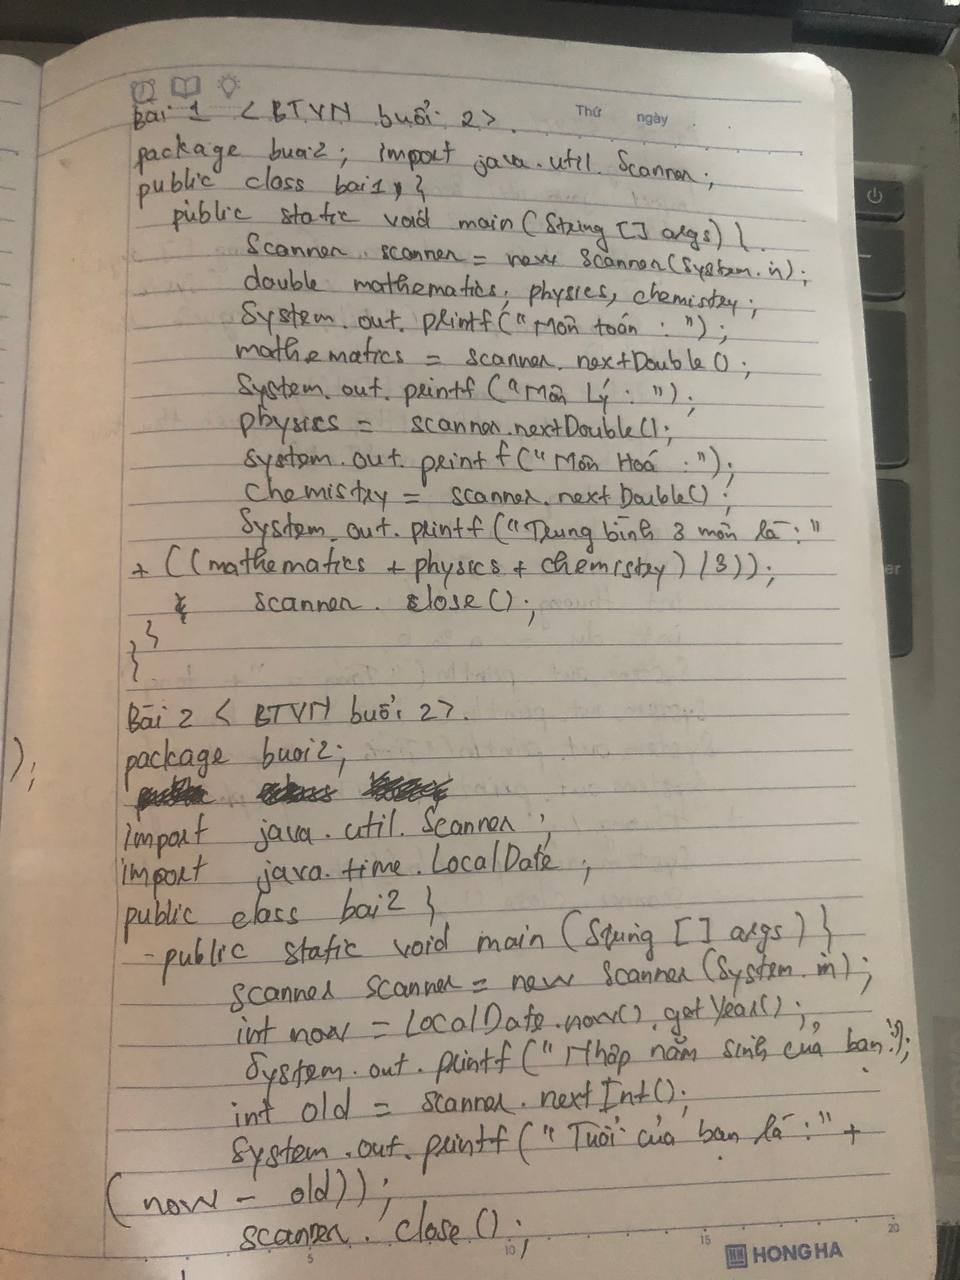 Thứ ngày
Bài 1 < BTVN buổi 2>.
package buoi2; import java.util.Scanner;
public class bai1 {
public static void main (String [] args) {
Scanner scanner = new Scanner(System.in);
double mathematics, physics, chemistry;
System.out.printf("Môn toán : ");
mathematics = scanner.nextDouble();
System.out.printf("Môn Lý : ");
physics = scanner.nextDouble();
System.out.printf("Môn Hoá : ");
chemistry = scanner.nextDouble();
System.out.printf("Trung bình 3 môn là :"
+ ((mathematics + physics + chemistry) /3));
scanner.close();
}
}
Bài 2 < BTVN buổi 2>.
package buoi2;
import java.util.Scanner;
import java.time.LocalDate;
public class bai2 {
- public static void main (String [] args) {
Scanner scanner = new Scanner (System.in);
int now = LocalDate.now().getYear();
System.out.printf("Nhập năm sinh của bạn:");
int old = scanner.nextInt();
System.out.printf("Tuổi của bạn là :" +
(now - old));
scanner.close();
);
5 10 15 20
HONG HA